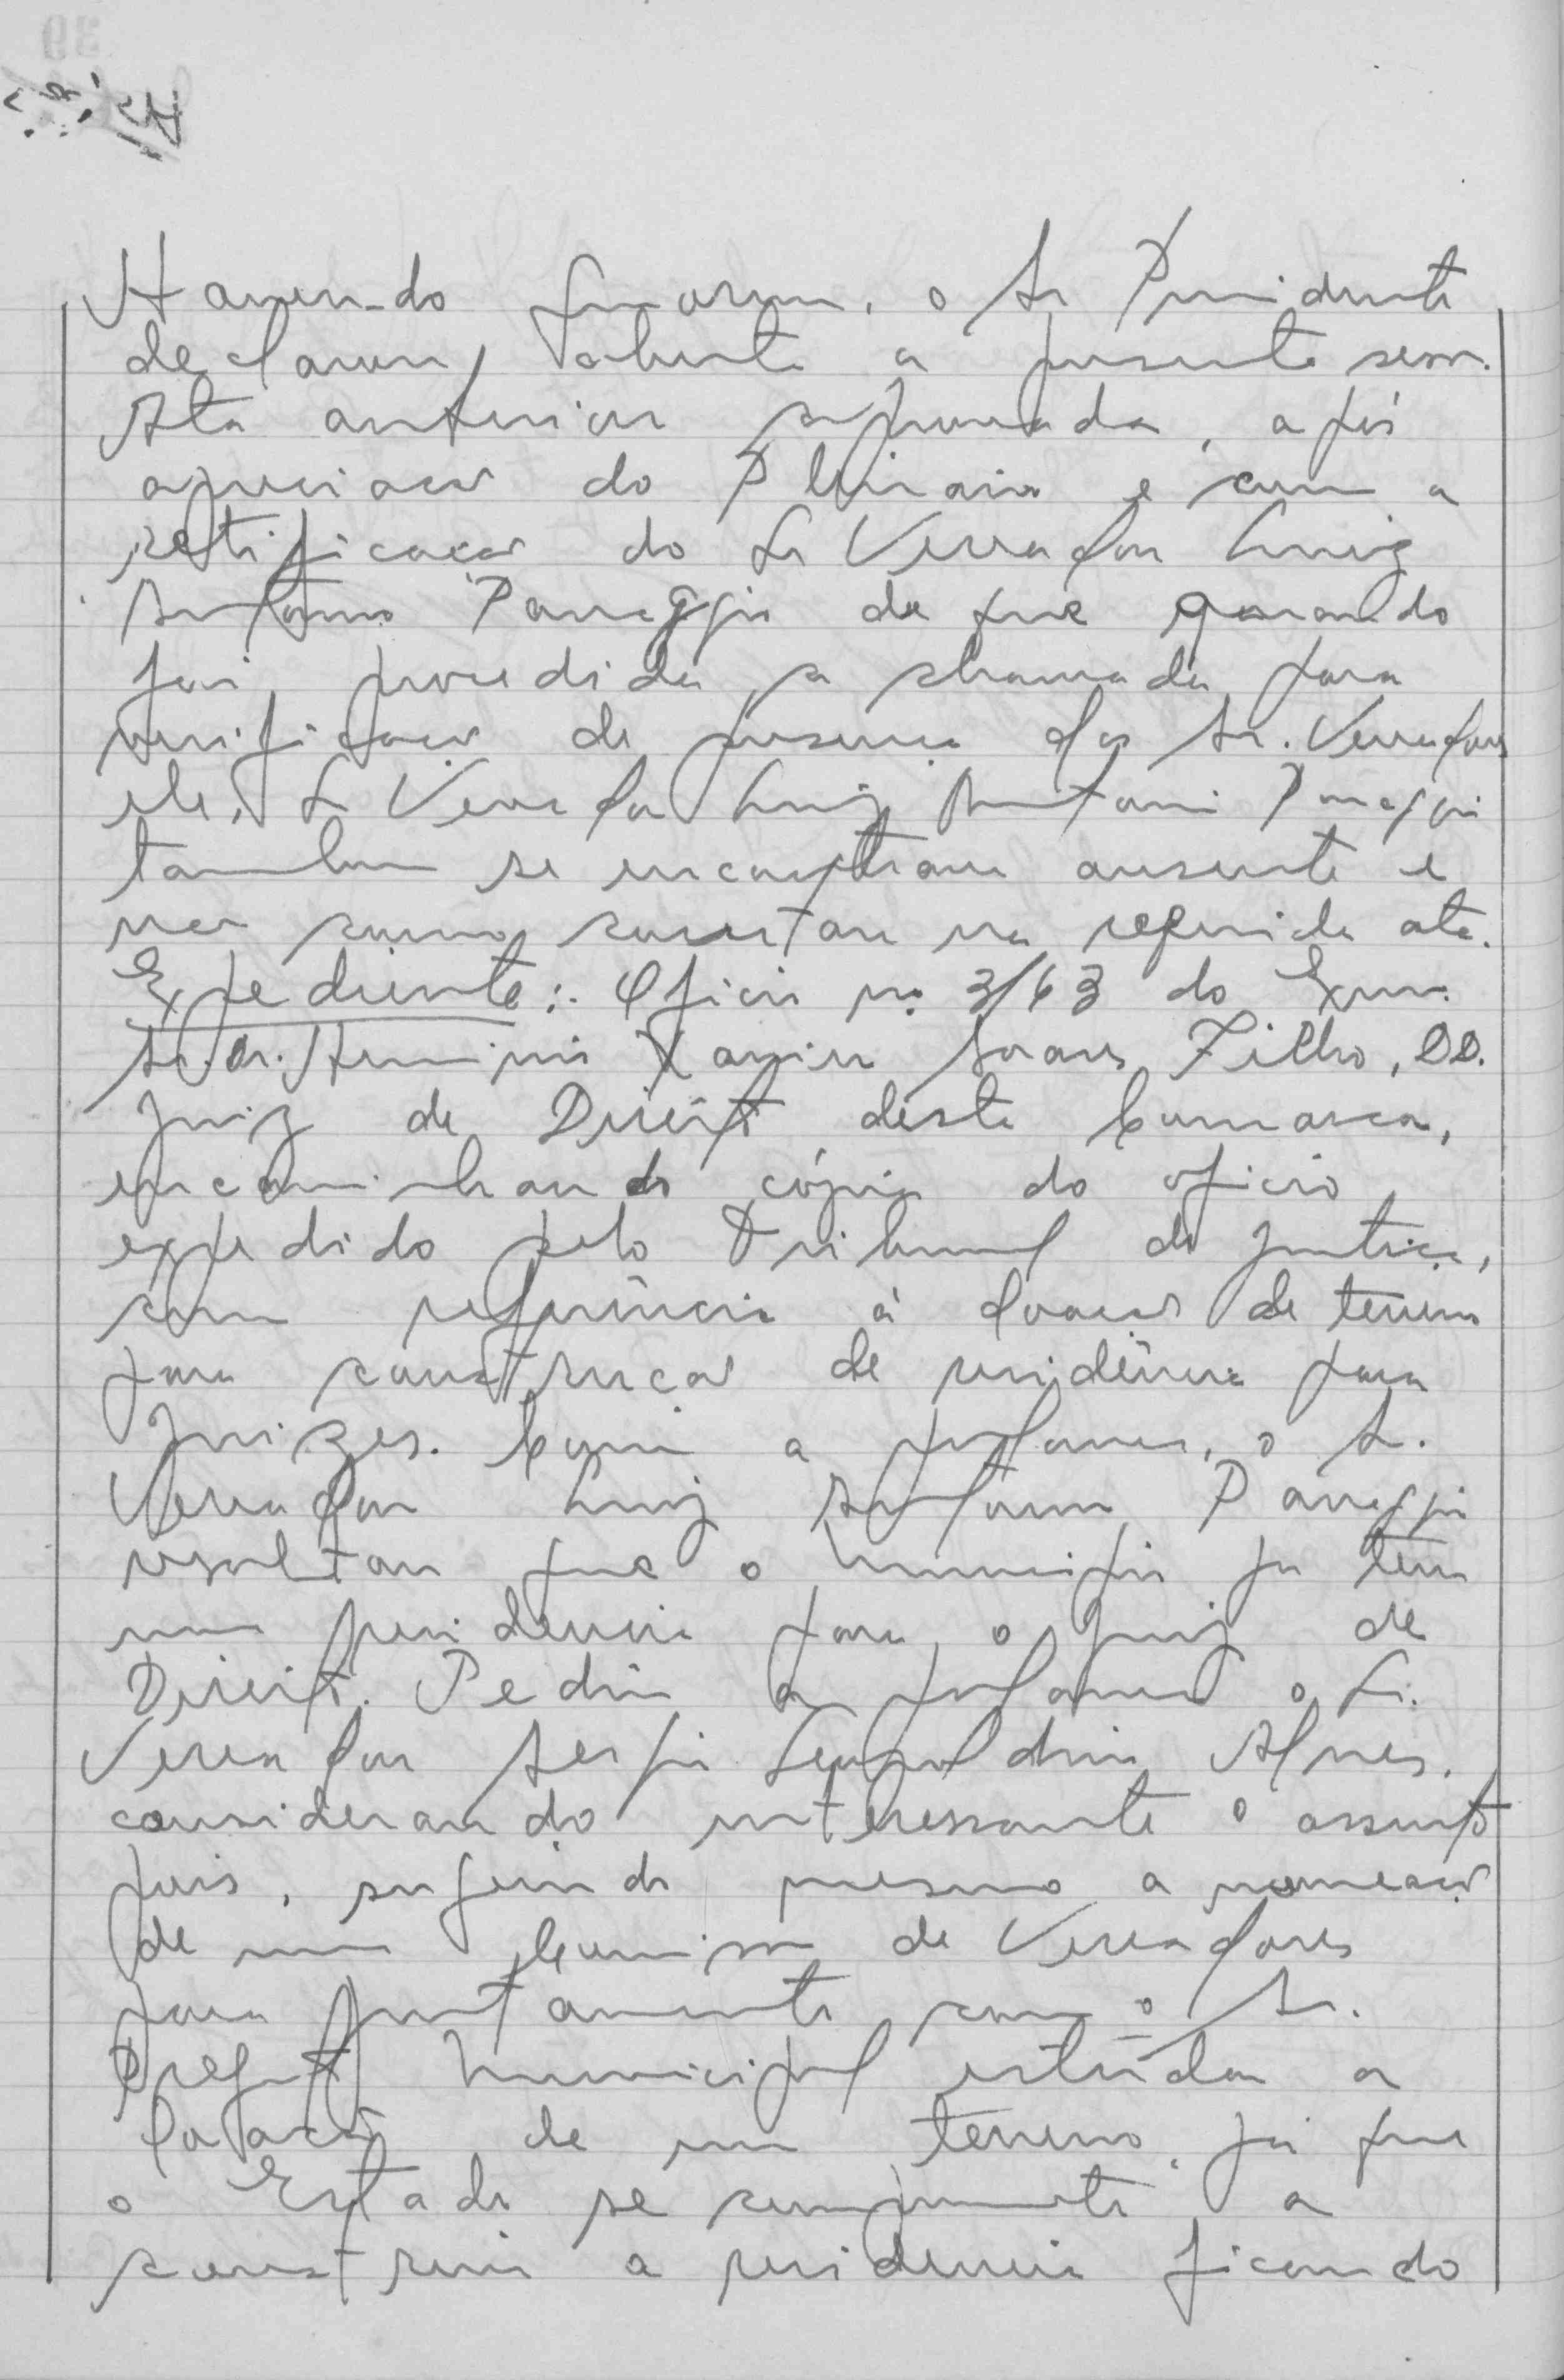 Havendo quorum, o Sr Presidente
declarou aberta a presente sessão.
Ata anterior aprovada, após
apreciação do Plenário e com a
retificação do Sr Vereador Luiz
Antonio Panegzio de que quando
foi procedida a chamada para
verificação de presença dos Sr. Vereadores
ele, Sr Vereador Luiz Antonio
também se encontrava ausente e
não como constou na referida ata.
Expediente:. Oficio no 3/63 do Exmo.
Sr. Dr. Herminio Xavier Soares Filho, DD.
Juiz de Direito desta Comarca,
encaminhando cópia do oficio
expedido pelo Tribunal de Justiça,
com referência à doação de terreno
para construção de residência para
Juizes. Com a palavra, o Sr.
Vereador Luiz Antonio
ressaltou que o Municipio ja tem
uma residencia para o Juiz de
Direito. Pediu a palavra o Sr.
Vereador Sergio Leopoldino Alves,
considerando interessante o assunto
pois, sugerindo mesmo a nomeação
de uma Comissão de Vereadores
para juntamente com o Sr.
Prefeito Municipal estudar a
doação de um terreno, já que
o Estado se compromete a
construir a residencia ficando